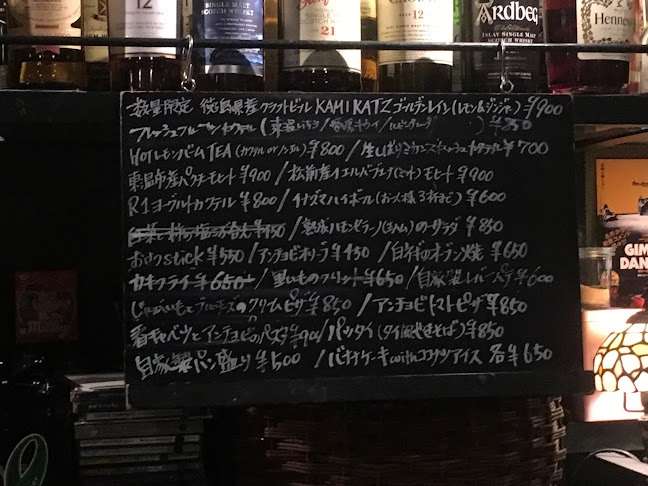 12
SINGLE MALT
SCOTCH WHISKY
21
12
ARDBEG
ISLAY SINGLE MALT
SCOTCH WHISKY
Hennessy
数量限定 徳島県産クラフトビール KAMIKATZ ゴールデンレイン(レモン&ジンジャー) ¥900
フレッシュフルーツカクテル ( / / ) ¥850
HOTレモンバームTEA(カクテル or ノンアル) ¥800 / 生しぼり カクテル ¥700
東温市産パクチーモヒート ¥900 / 松前産イエルバブエナ(ミント)モヒート ¥900
R1ヨーグルトカクテル ¥800 / イナズマハイボール(お一人様3杯まで) ¥600
¥450 / 熟成ハモンセラーノ(生ハム)のサラダ ¥850
おやつstick ¥550 / アンチョビオリーブ ¥450 / 白ネギのオーブン焼 ¥650
カキフライ ¥650 / 黒いものフリット ¥650 / 自家製レバーパテ ¥600
じゃがいもとブルーチーズのクリームピザ ¥850 / アンチョビトマトピザ ¥850
春キャベツとアンチョビのパスタ ¥900 / パッタイ(タイ風焼きそば) ¥850
自家製パン盛り ¥500 / バナナケーキwithココナツアイス 各¥650
GIM
DAN